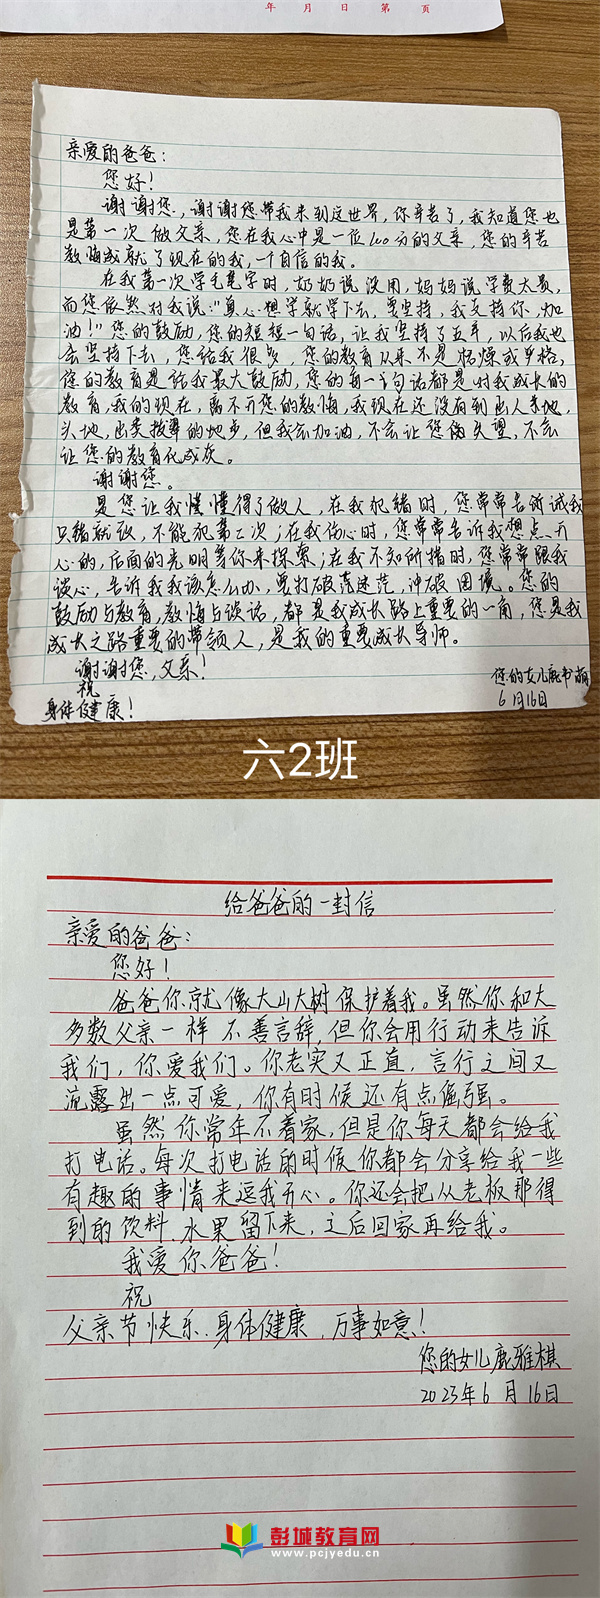 年 月 日 第 页
亲爱的爸爸：
您好！
谢谢您，谢谢您带我来到这世界，你辛苦了，我知道您也
是第一次做父亲，您在我心中是一位100分的父亲，您的辛苦
教悔成就了现在的我，一个自信的我。
在我第一次学毛笔字时，奶奶说没用，妈妈说学费太贵，
而您依然对我说："真心想学就学下去，要坚持，我支持你，加
油！"您的鼓励，您的短短一句话，让我坚持了五年，以后我也
会坚持下去，您给我很多，您的教育从来不是枯燥或严格，
您的教育是给我最大鼓励，您的每一个句话都是对我成长的
教育，我的现在，离不开您的教悔，我现在还没有到出人头地，
头地，出类拔萃的地步，但我会加油，不会让您失望，不会
让您的教育化成灰。
谢谢您。
是您让我懂懂得了做人，在我犯错时，您常常告诉诫我
只错就改，不能犯第二次；在我伤心时，您常常告诉我想点开
心的，后面的光明等你来探索；在我不知所措时，您常常跟我
谈心，告诉我我该怎么办，要打破茫迷茫，冲破困境。您的
鼓励与教育，教悔与谈话，都是我成长路上重要的一角，您是我
成长之路重要的带领人，是我的重要成长导师。
谢谢您，父亲！
祝
身体健康！
您的女儿鹿书萌
6月16日
六2班
给爸爸的一封信
亲爱的爸爸：
您好！
爸爸你就像大山大树保护着我。虽然你和大
多数父亲一样不善言辞，但你会用行动来告诉
我们，你爱我们。你老实又正直，言行之间又
流露出一点可爱，你有时候还有点倔强。
虽然你常年不着家，但是你每天都会给我
打电话。每次打电话的时候你都会分享给我一些
有趣的事情来逗我开心。你还会把从老板那得
到的饮料、水果留下来，之后回家再给我。
我爱你爸爸！
祝
父亲节快乐、身体健康、万事如意！
您的女儿鹿雅棋
2023年6月16日
彭城教育网
www.pcjyedu.cn